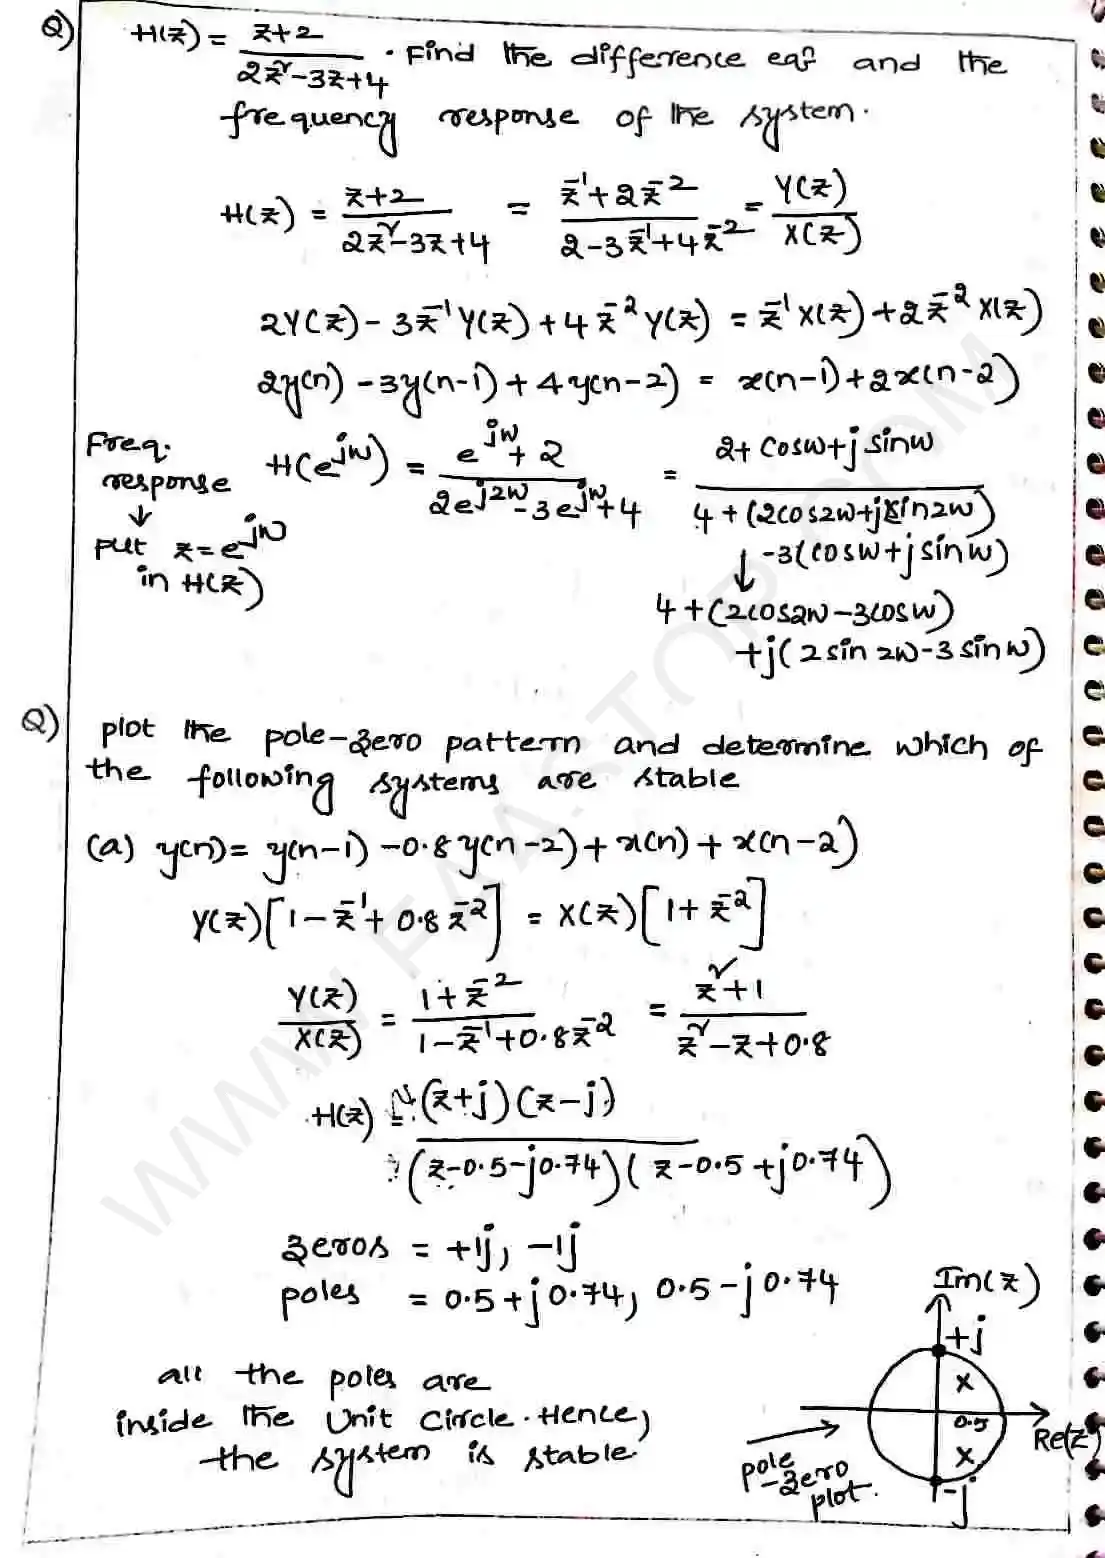 Q) H(z) = z+2 / 2z² - 3z + 4 . Find the difference eqn and the
frequency response of the system.
H(z) = z+2 / 2z² - 3z + 4 = z⁻¹ + 2z⁻² / 2 - 3z⁻¹ + 4z⁻² = Y(z) / X(z)
2Y(z) - 3z⁻¹ Y(z) + 4z⁻² Y(z) = z⁻¹ X(z) + 2z⁻² X(z)
2y(n) - 3y(n-1) + 4y(n-2) = x(n-1) + 2x(n-2)
Freq.
response
↓
put z = e^jw
in H(z)
H(e^jw) = e^jw + 2 / 2e^j2w - 3e^jw + 4 = 2 + cosw + j sinw / 4 + (2cos2w + j2sin2w)
-3(cosw + j sinw)
↓
4 + (2cos2w - 3cosw)
+ j(2 sin 2w - 3 sin w)
Q) plot the pole-zero pattern and determine which of
the following systems are stable
(a) y(n) = y(n-1) - 0.8 y(n-2) + x(n) + x(n-2)
Y(z)[1 - z⁻¹ + 0.8 z⁻²] = X(z)[1 + z⁻²]
Y(z) / X(z) = 1 + z⁻² / 1 - z⁻¹ + 0.8z⁻² = z² + 1 / z² - z + 0.8
H(z) = (z+j)(z-j) / (z-0.5-j0.74)(z-0.5+j0.74)
zeros = +1j, -1j
poles = 0.5+j0.74, 0.5-j0.74
all the poles are
inside the Unit Circle. Hence,
the system is stable
Im(z)
+j
x
0.5
Re(z)
x
-j
pole
-zero
plot.
WWW.FAASTOP.COM